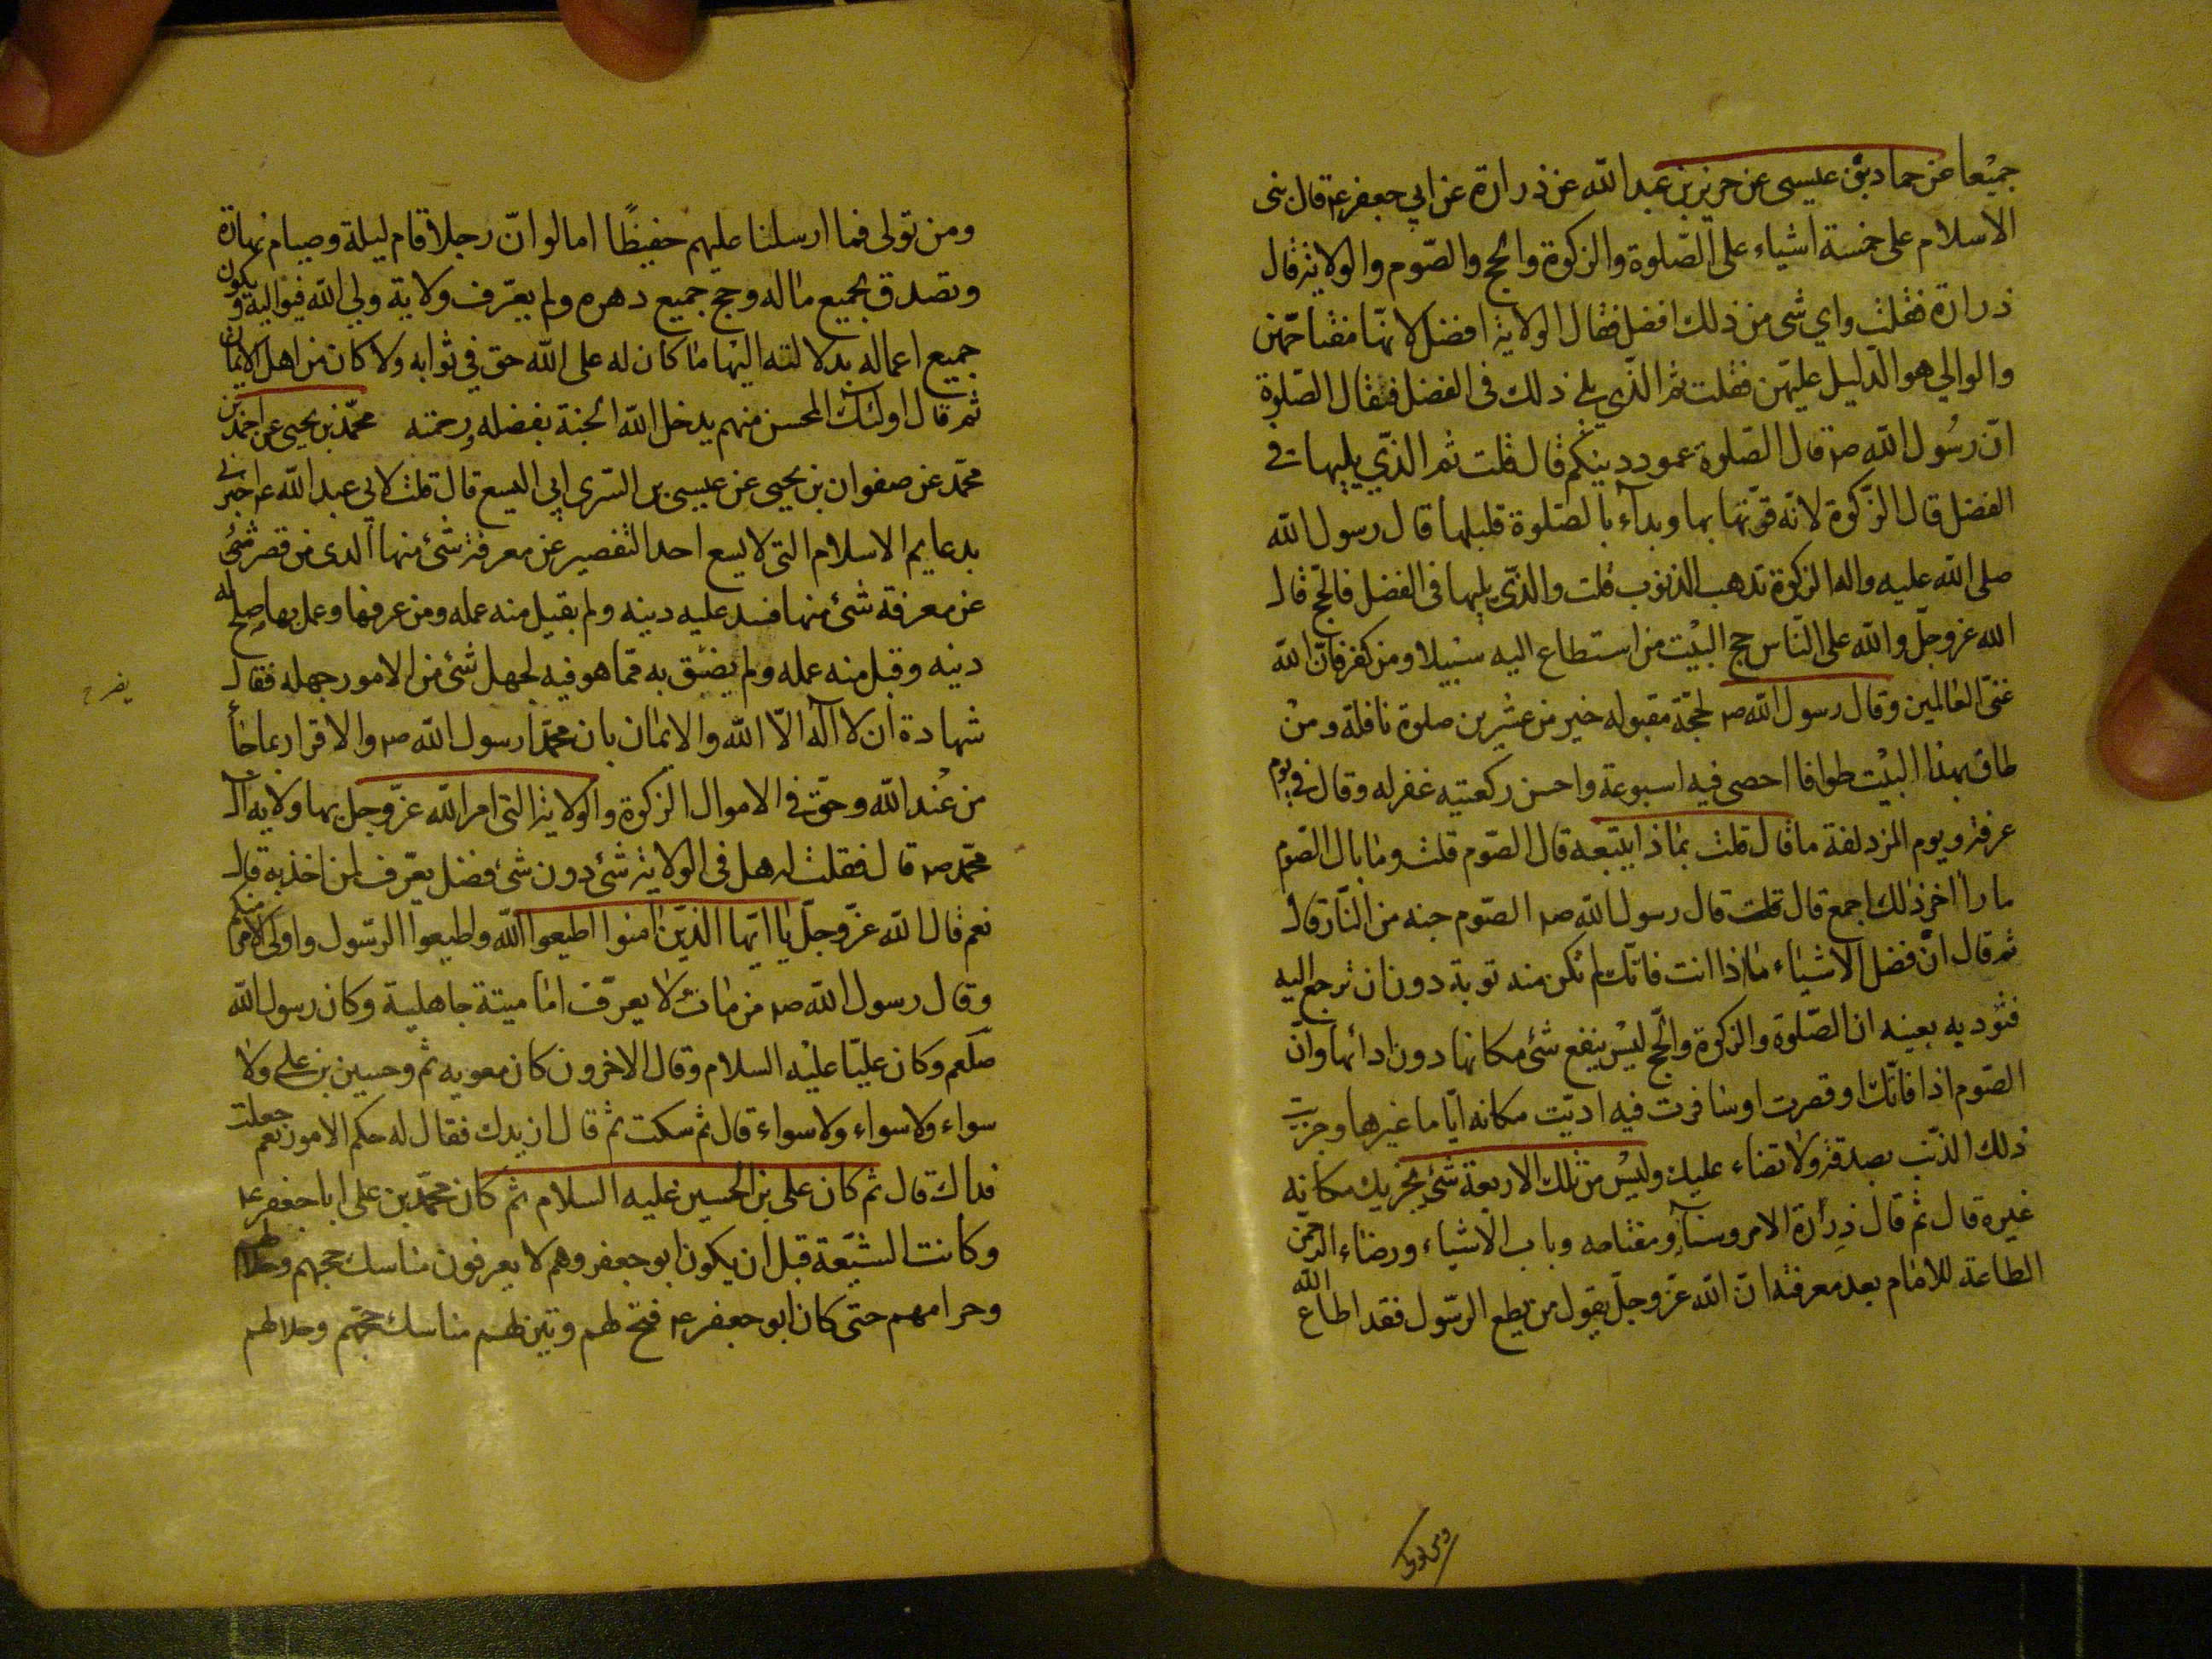 جميعا عن حماد بن عيسى عن حريز بن عبد الله عن زرارة عن ابي جعفر ع قال بنى
الاسلام على خمسة اشياء على الصلوة والزكوة والحج والصوم والولاية قال
زرارة فقلت واي شى من ذلك افضل فقال الولاية افضل لانها مفتاحهن
والوالي هو الدليل عليهن فقلت ثم الذي يلي ذلك فى الفضل فقال الصلوة
ان رسول الله ص قال الصلوة عمود دينكم قال قلت ثم الذي يليها فى
الفضل قال الزكوة لانه قرنها بها وبداء بالصلوة قبلها قال رسول الله
صلى الله عليه واله الزكوة تدهب الذنوب قلت والذي يليها فى الفضل فالحج قال
الله عز وجل ولله على الناس حج البيت من استطاع اليه سبيلا ومن كفر فان الله
غنى العالمين وقال رسول الله ص لحجة مقبوله خير من عشرين صلوة نافلة ومن
طاف بهذا البيت طوافا احصى فيه اسبوعة واحسن ركعتيه غفر له وقال فى يوم
عرفة ويوم المزدلفة ما قال قلت بماذا يتبعه قال الصوم قلت وما بال الصوم
ما راا اخر ذلك اجمع قال قلت قال رسول الله ص الصوم جنه من النار قال
ثم قال ان فضل الاشياء ما اذا انت فاتك لم تكن منه توبة دون ان ترجع اليه
فتوديه بعينه ان الصلوة والزكوة والحج ليس ينفع شئ مكانها دون ادائها وان
الصوم اذا فاتك او قصرت او سافرت فيه اديت مكانه اياما غيرها وجزيت
ذلك الذنب بصدقة ولا قضاء عليك وليس من تلك الاربعة شئ يجزيك مكانه
غيره قال ثم قال ذرأرة الامر وسنآو مفتاحه وباب الاشياء ورضاء الرحمن
الطاعة للامام بعد معرفته ان الله عز وجل يقول من يطع الرسول فقد اطاع الله
ومن تولى فما ارسلنا عليهم حفيظا اما لو ان رجلا قام ليلة وصيام نهارة
وتصدق بجميع ماله وحج جميع دهره ولم يعرف ولاية ولي الله فيواليه و يكون
جميع اعماله بدلالته اليها ما كان له على الله حق في ثوابه ولا كان من اهل الايمان
ثم قال اولئك المحسن منهم يدخل الله الجنة بفضله ورحمته محمد بن يحيى عن احمد بن
محمد عن صفوان بن يحيى عن عيسى بن السرى ابي اليسع قال قلت لابي عبد الله ع اخبرنى
بدعايم الاسلام التى لا يسع احد التقصير عن معرفة شئ منها الدى من قصر شئ
عن معرفة شئ منها فسد عليه دينه ولم يقبل منه عمله ومن عرفها وعمل بها صلح له
دينه وقبل منه عمله ولم يضق به مما هو فيه لجهل شئ من الامور جهله فقال
شهادة ان لا اله الا الله والايمان بان محمدا رسول الله ص والاقرار بما جأ
من عند الله وحق فى الاموال الزكوة والولاية التى امر الله عز وجل بها ولايه ال
محمد ص قال فقلت له هل فى الولاية شئ دون شئ فضل يعرف لمن اخذ به قال
نعم قال الله عز وجل يا ايها الذين امنوا اطيعوا الله واطيعوا الرسول واولى الامر منكم
وقال رسول الله ص من مات لا يعرف امامه ميتة جاهلية وكان رسول الله
صلعم وكان عليا عليه السلام وقال الاخرون كان معويه ثم وحسين بن على ولا
سواء ولا سواء ولا سواء قال ثم سكت ثم قال ازيدك فقال له حكم الامور نعم جعلت
فداك قال ثم كان على بن الحسين عليه السلام ثم كان محمد بن على ابا جعفر ع
وكانت الشيعة قبل ان يكون ابو جعفر وهم لا يعرفون مناسك حجهم وحلالهم
وحرامهم حتى كان ابو جعفر ع فتح لهم وتبين لهم مناسك حجهم وحلالهم